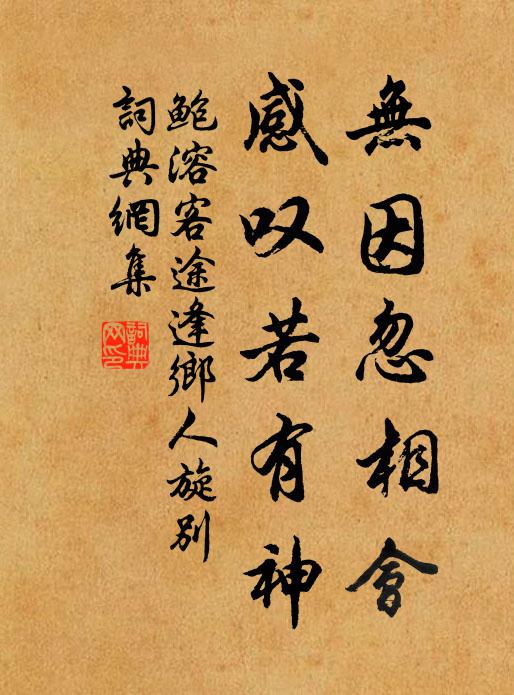 無因忽相會
感叹若有神
鲍溶客途逢鄉人旋别
詞典網集
詞典网印